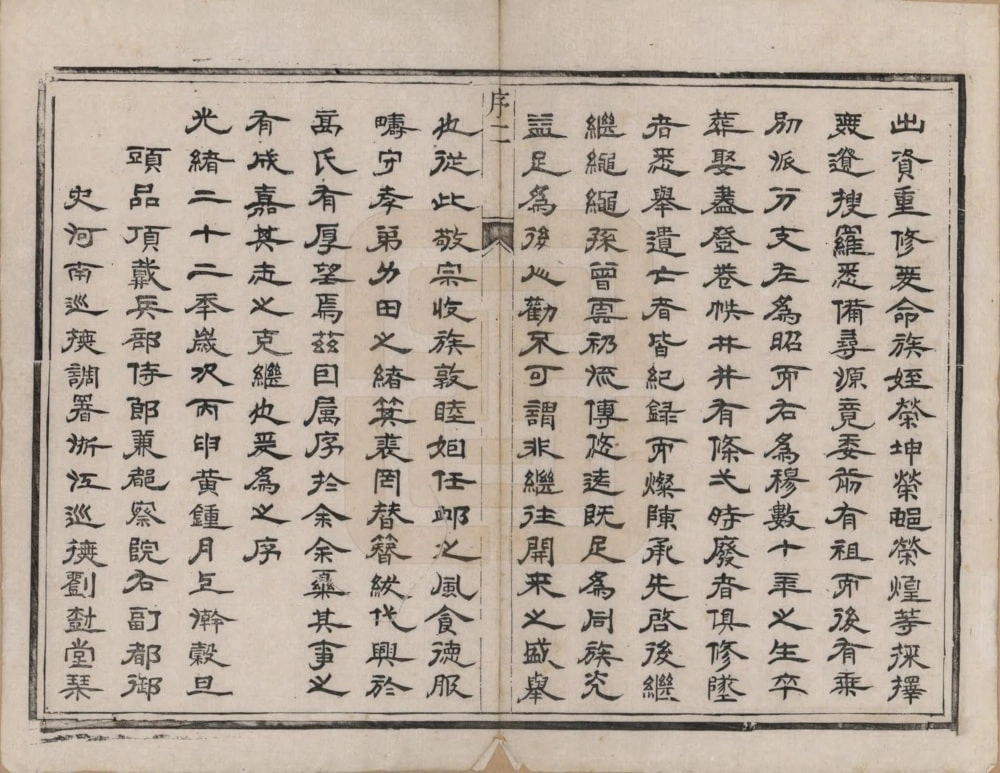 出資重修爰命族姪榮坤榮郒榮煌等採擇
無遺搜羅悉備尋源竟委前有祖而後有乘
別派分支左為昭而右為穆數十年之生卒
葬娶盡登卷帙井井有條弌時廢者俱修墜
者悉舉遺亡者皆紀錄而燦陳承先啓後繼
繼繩繩孫曾雲礽流傳悠遠既足為同族光
益足為後此勸不可謂非繼往開來之盛舉
序二
也從此敬宗收族敦睦姻任卹之風食德服
疇守孝弟力田之緒箕裘罔替簪紱代興於
高氏有厚望焉茲因属序於余余稾其事之
有成嘉其志之克繼也爰為之序
光緒二十二年歲次丙申黃鍾月上澣穀旦
頭品頂戴兵部侍郎兼都察院右副都御
史河南巡撫調署浙江巡撫劉樹堂琹